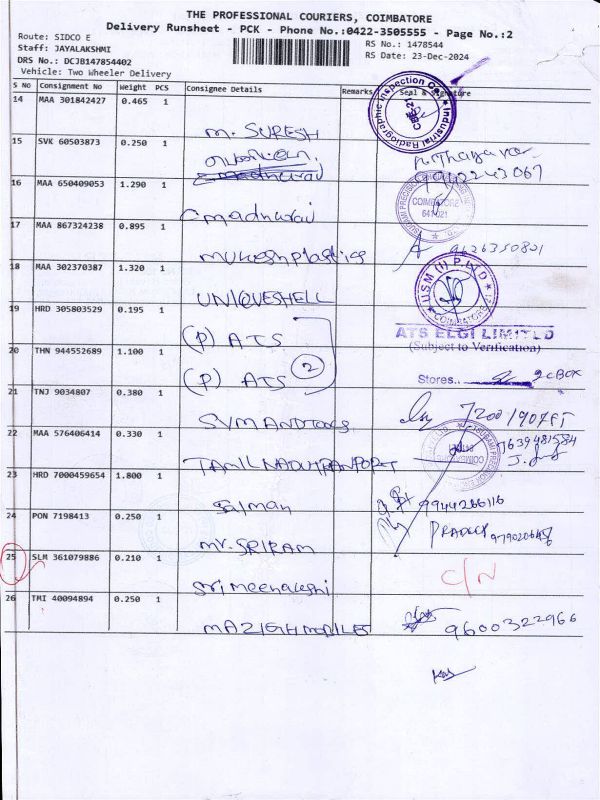 THE PROFESSIONAL COURIERS, COIMBATORE
Delivery Runsheet - PCK - Phone No.:0422-3505555 - Page No.:2
Route: SIDCO E
RS No.: 1478544
Staff: JAYALAKSHMI
RS Date: 23-Dec-2024
DRS No.: DCJB147854402
Vehicle: Two Wheeler Delivery
S No Consignment No Weight PCS Consignee Details Remarks Seal & Signature
14 MAA 301842427 0.465 1
M. SURESH
Industrial Radiographic Inspection
CBE-21
15 SVK 60503873 0.250 1
16 MAA 650409053 1.290 1
madhurai
COIMBATORE
641 021
17 MAA 867324238 0.895 1
mukesh plastics
9626350801
18 MAA 302370387 1.320 1
UNIQUESHELL
USM (I) P LTD
COIMBATORE
19 HRD 305803529 0.195 1
(P) ATS
ATS ELGI LIMITED
(Subject to Verification)
20 THN 944552689 1.100 1
(P) ATS 2
Stores.. 2CBOX
21 TNJ 9034807 0.380 1
SVM AND Tools
22 MAA 576406414 0.330 1
TAMILNADU TRANPORT
7639481584
23 HRD 7000459654 1.800 1
Salman
9944266116
24 PON 7198413 0.250 1
Mr. SRIRAM
9790206456
25 SLM 361079886 0.210 1
Sri meenakshi
C/N
26 TMI 40094894 0.250 1
9600322966